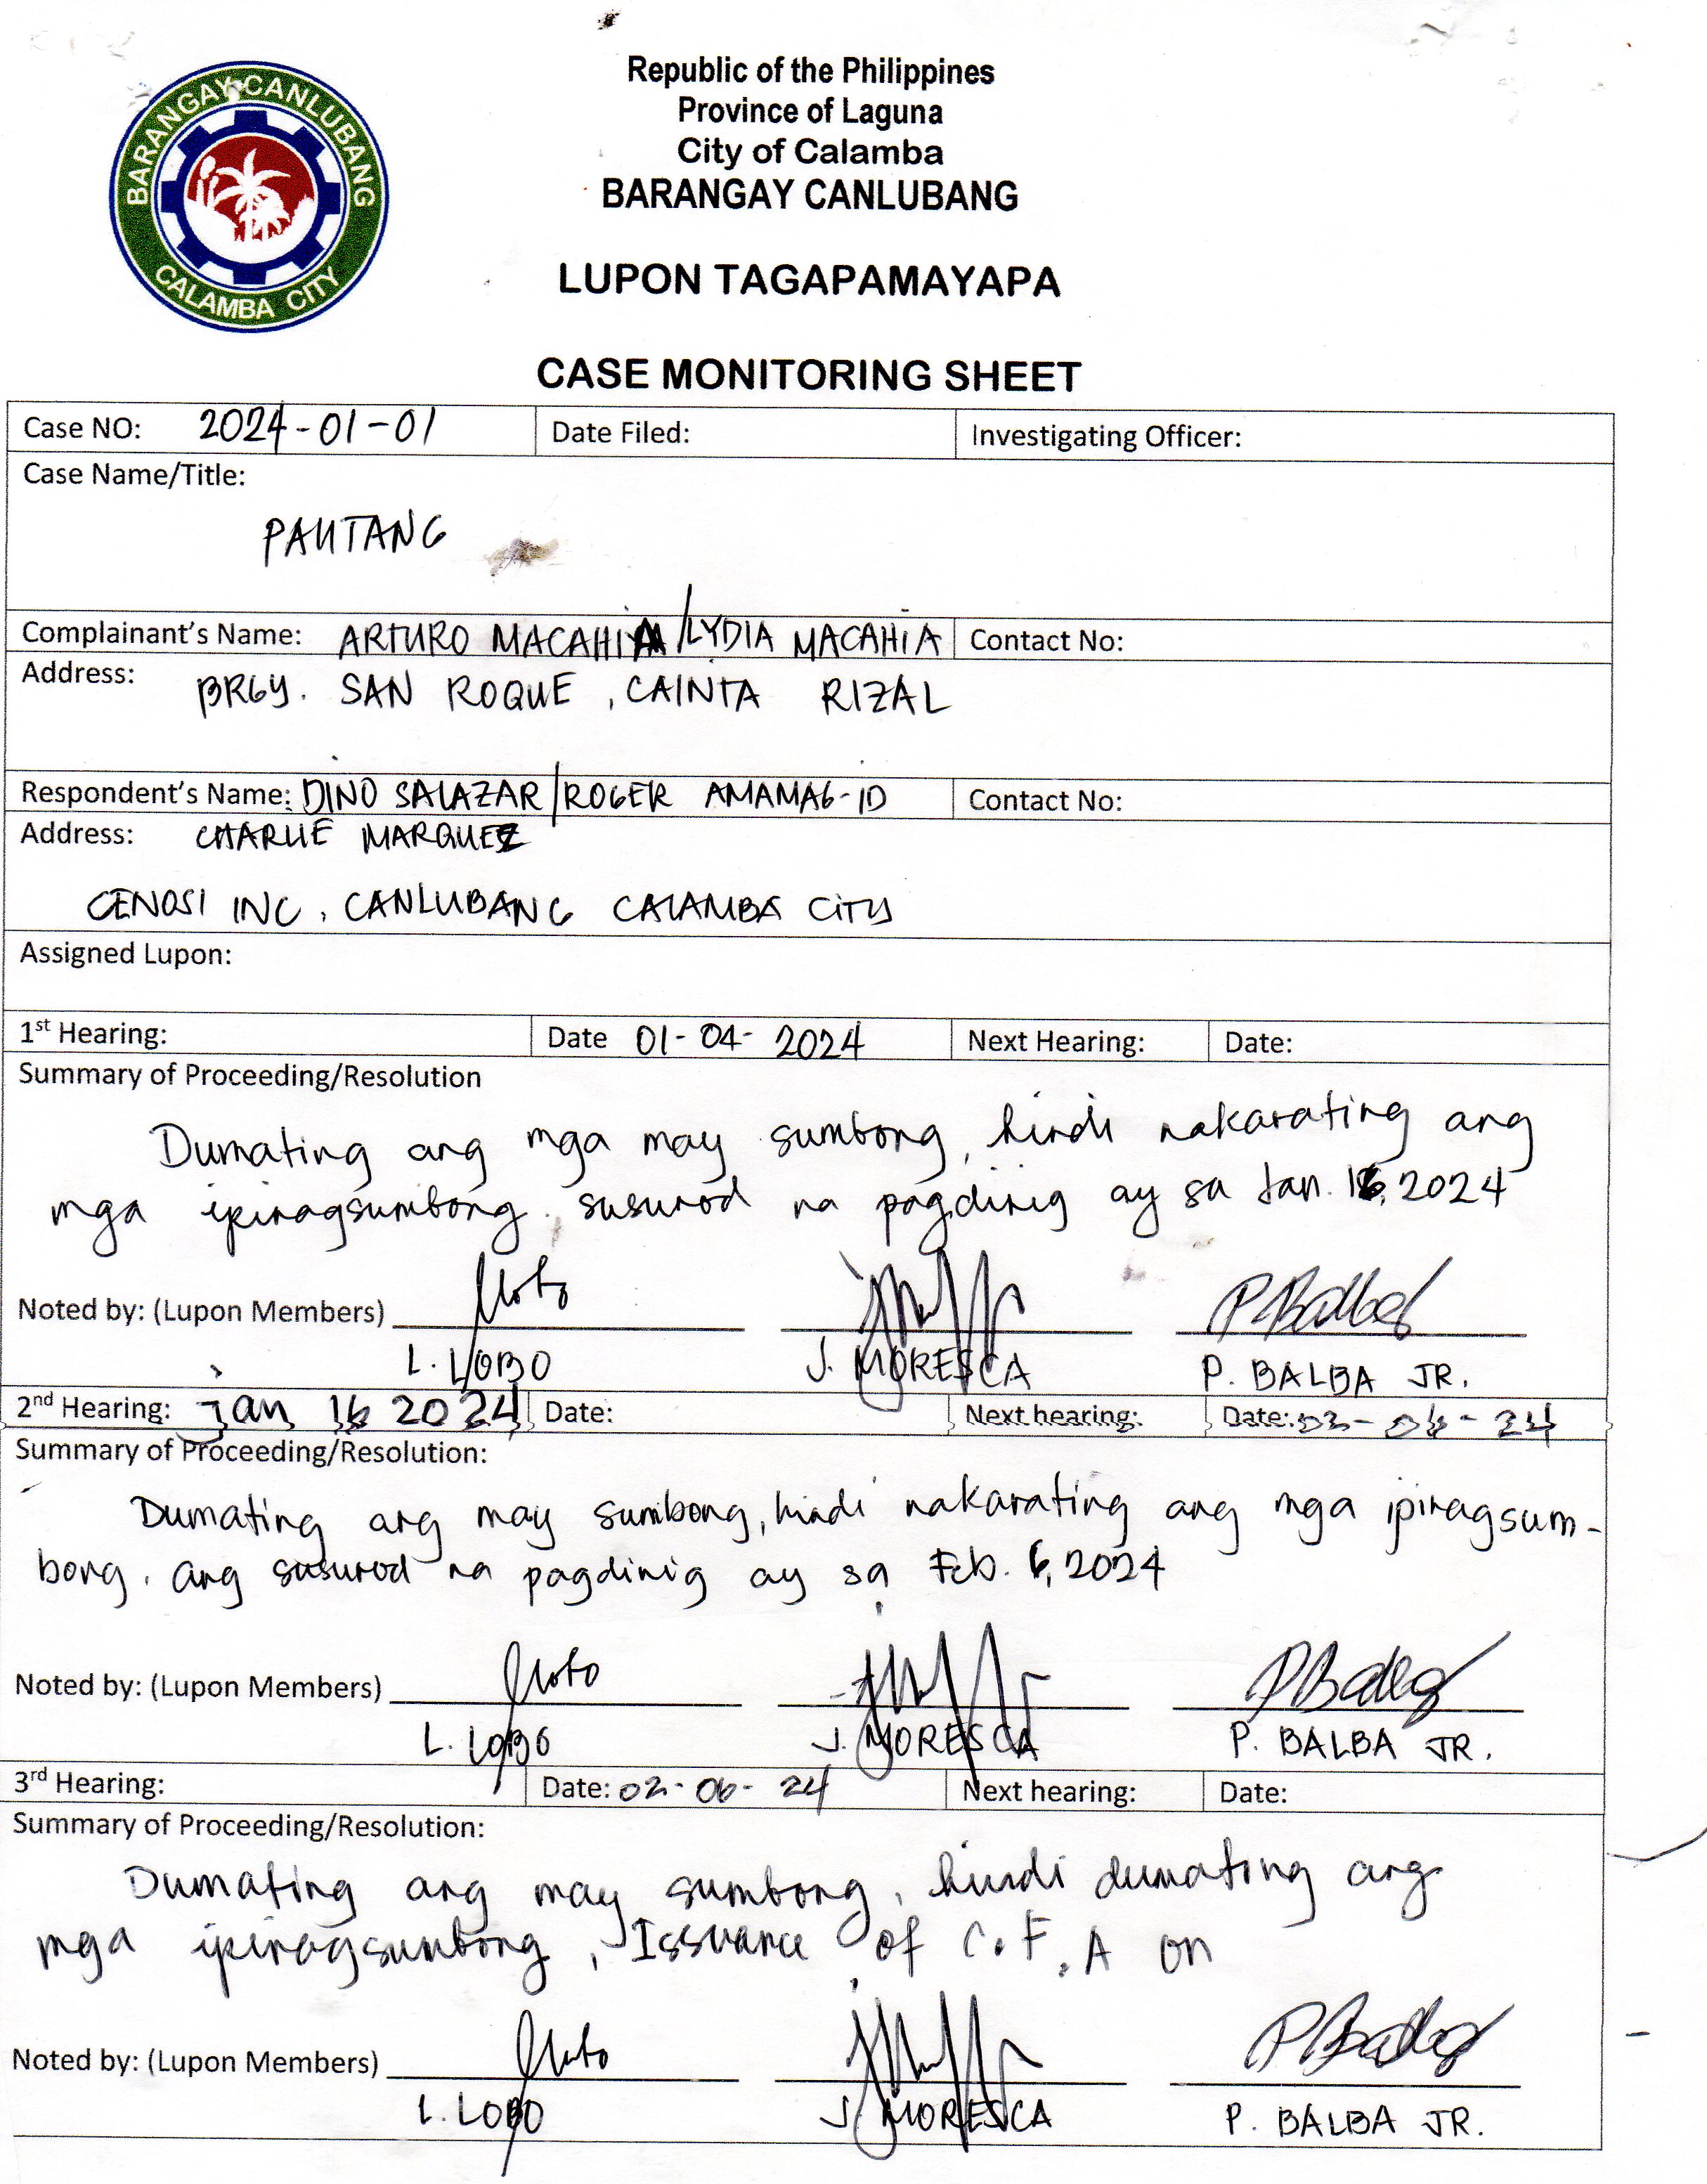 BARANGAY CANLUBANG
CALAMBA CITY
Republic of the Philippines
Province of Laguna
City of Calamba
BARANGAY CANLUBANG
LUPON TAGAPAMAYAPA
CASE MONITORING SHEET
Case NO: 2024-01-01 Date Filed: Investigating Officer:
Case Name/Title:
PAUTANG
Complainant's Name: ARTURO MACAHIA/LYDIA MACAHIA Contact No:
Address: BRGY. SAN ROQUE, CAINTA RIZAL
Respondent's Name: DINO SALAZAR/ROGER AMAMAG-ID Contact No:
Address: CHARLIE MARQUEZ
CENOSI INC, CANLUBANG CALAMBA CITY
Assigned Lupon:
1st Hearing: Date 01-04-2024 Next Hearing: Date:
Summary of Proceeding/Resolution
Dumating ang mga may sumbong, hindi nakarating ang
mga ipinagsumbong. susunod na pagdinig ay sa Jan. 16, 2024
Noted by: (Lupon Members)
L. LOBO J. MORESCA P. BALBA JR.
2nd Hearing: Jan 16 2024 Date: Next hearing: Date: 02-06-24
Summary of Proceeding/Resolution:
Dumating ang may sumbong, hindi nakarating ang mga ipinagsum-
bong. ang susunod na pagdinig ay sa Feb. 6, 2024
Noted by: (Lupon Members)
L. LOBO J. MORESCA P. BALBA JR.
3rd Hearing: Date: 02-06-24 Next hearing: Date:
Summary of Proceeding/Resolution:
Dumating ang may sumbong, hindi dumating ang
mga ipinagsumbong, Issuance of C.F.A on
Noted by: (Lupon Members)
L. LOBO J. MORESCA P. BALBA JR.